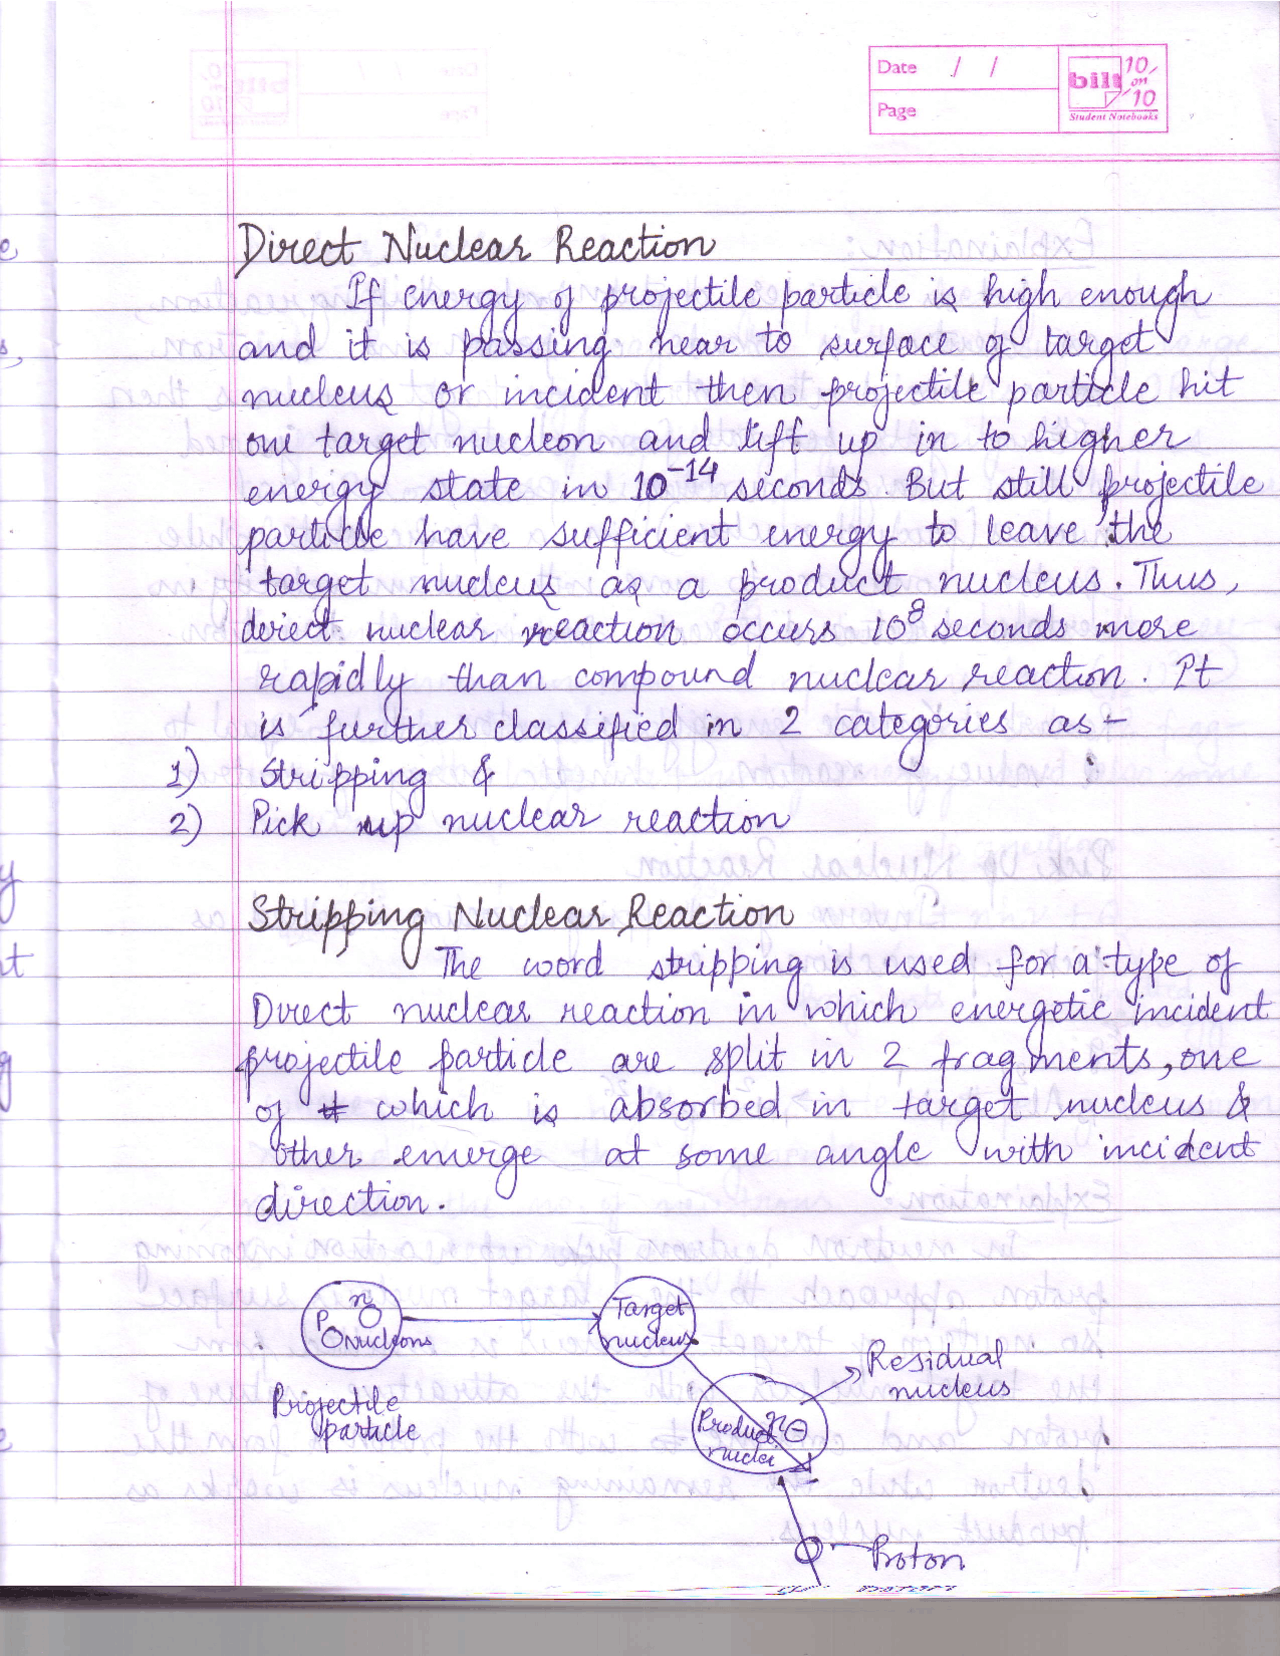 Date / /
Page
bilt 10 on 10
Student Notebooks
Direct Nuclear Reaction
If energy of projectile particle is high enough
and it is passing near to surface of target
nucleus or incident then projectile particle hit
one target nucleon and lift up in to higher
energy state in 10⁻¹⁴ seconds. But still projectile
particle have sufficient energy to leave the
target nucleus as a product nucleus. Thus,
direct nuclear reaction occurs 10⁸ seconds more
rapidly than compound nuclear reaction. It
is further classified in 2 categories as -
1) Stripping &
2) Pick up nuclear reaction
Stripping Nuclear Reaction
The word stripping is used for a type of
Direct nuclear reaction in which energetic incident
projectile particle are split in 2 fragments, one
of which is absorbed in target nucleus &
other emerge at some angle with incident
direction.
n
P Nucleons
Target
nucleus
Projectile
particle
Residual
nucleus
Product n
nuclei
Proton